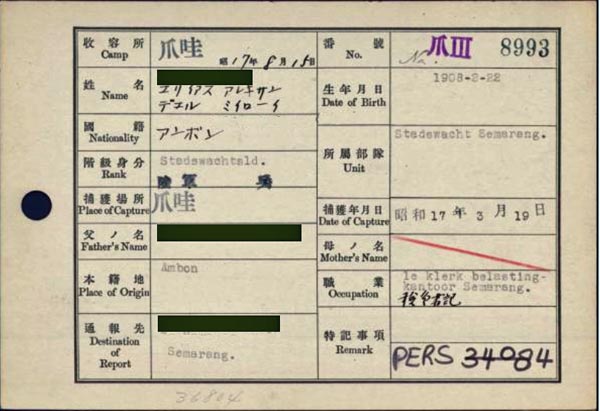 收容所
Camp
爪哇
昭17年8月15日
番號
No.
No.
爪III 8993
姓名
Name
エリヤス アレキサン
デエル ミイローイ
生年月日
Date of Birth
1908-2-22
國籍
Nationality
アンボン
所屬部隊
Unit
Stadswacht Semarang.
階級身分
Rank
Stadswachtsld.
陸軍
捕獲場所
Place of Capture
爪哇
捕獲年月日
Date of Capture
昭和17年3月19日
父ノ名
Father's Name
母ノ名
Mother's Name
本籍地
Place of Origin
Ambon
職業
Occupation
1e klerk belasting-
kantoor Semarang.
通報先
Destination
of
Report
Semarang.
特記事項
Remark
PERS 34084
36804